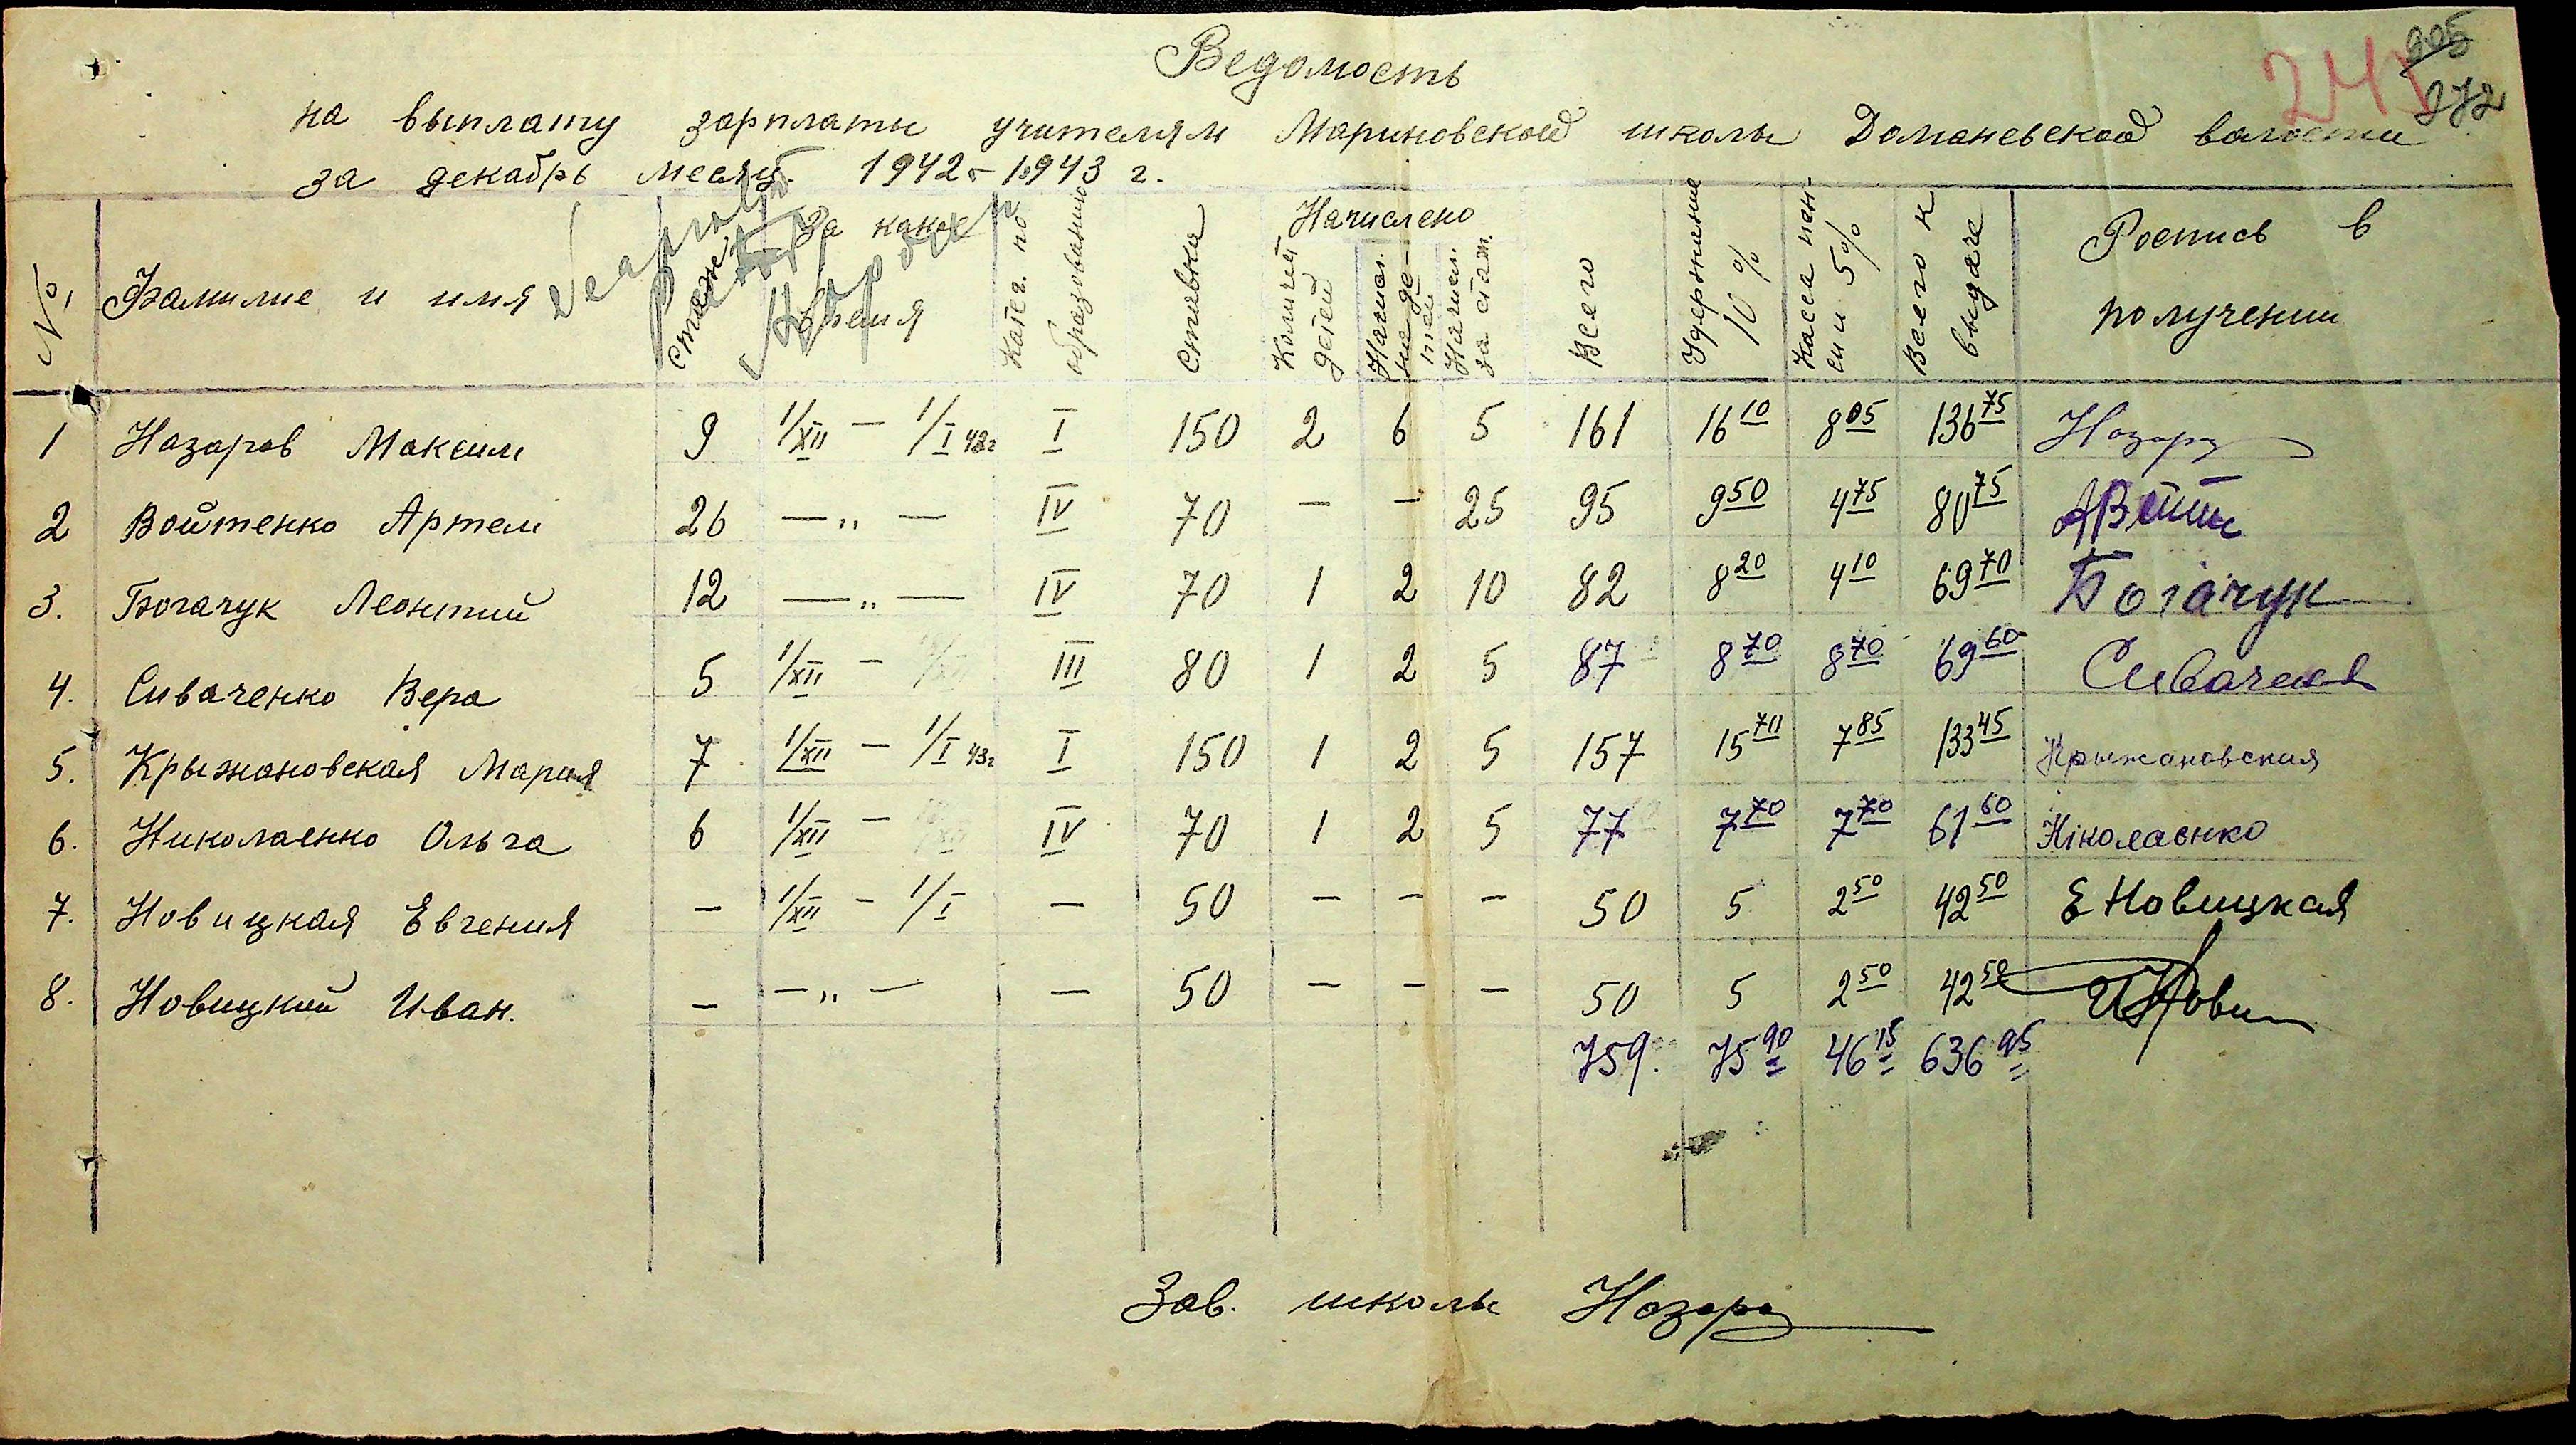 Ведомость
на выплату зарплаты учителям Мариновской школы Доманевской волости
за декабрь месяц 1942-1943 г.
205
241
272
№, Фамилие и имя Стаж За какое время Катег. по образованию Ставка Начислено Количест. детей Начисл. на детей Начисл. за стаж. Всего Удержание 10% Касса пенсии 5% Всего к выдаче Роспись в получении
1 Назаров Максим 9 1/XII – 1/I 43г I 150 2 6 5 161 16 10 8 05 136 75 Назар
2 Войтенко Артем 26 — „ — IV 70 – – 25 95 9 50 4 75 80 75
3. Богачук Леонтий 12 — „ — IV 70 1 2 10 82 8 20 4 10 69 70 Богачук
4. Сиваченко Вера 5 1/XII – III 80 1 2 5 87 8 70 8 70 69 60
5. Крыжановская Мария 7 1/XII – 1/I 43г I 150 1 2 5 157 15 70 7 85 133 45 Крыжановская
6. Николаенко Ольга 6 1/XII – IV 70 1 2 5 77 7 70 7 70 61 60 Ніколаєнко
7. Новицкая Евгения – 1/XII – 1/I – 50 – – – 50 5 2 50 42 50 Е Новицкая
8. Новицкий Иван. – — „ — – 50 – – – 50 5 2 50 42 50 ИНови
759. 75 90 46 15 636 95
Зав. школы Назар